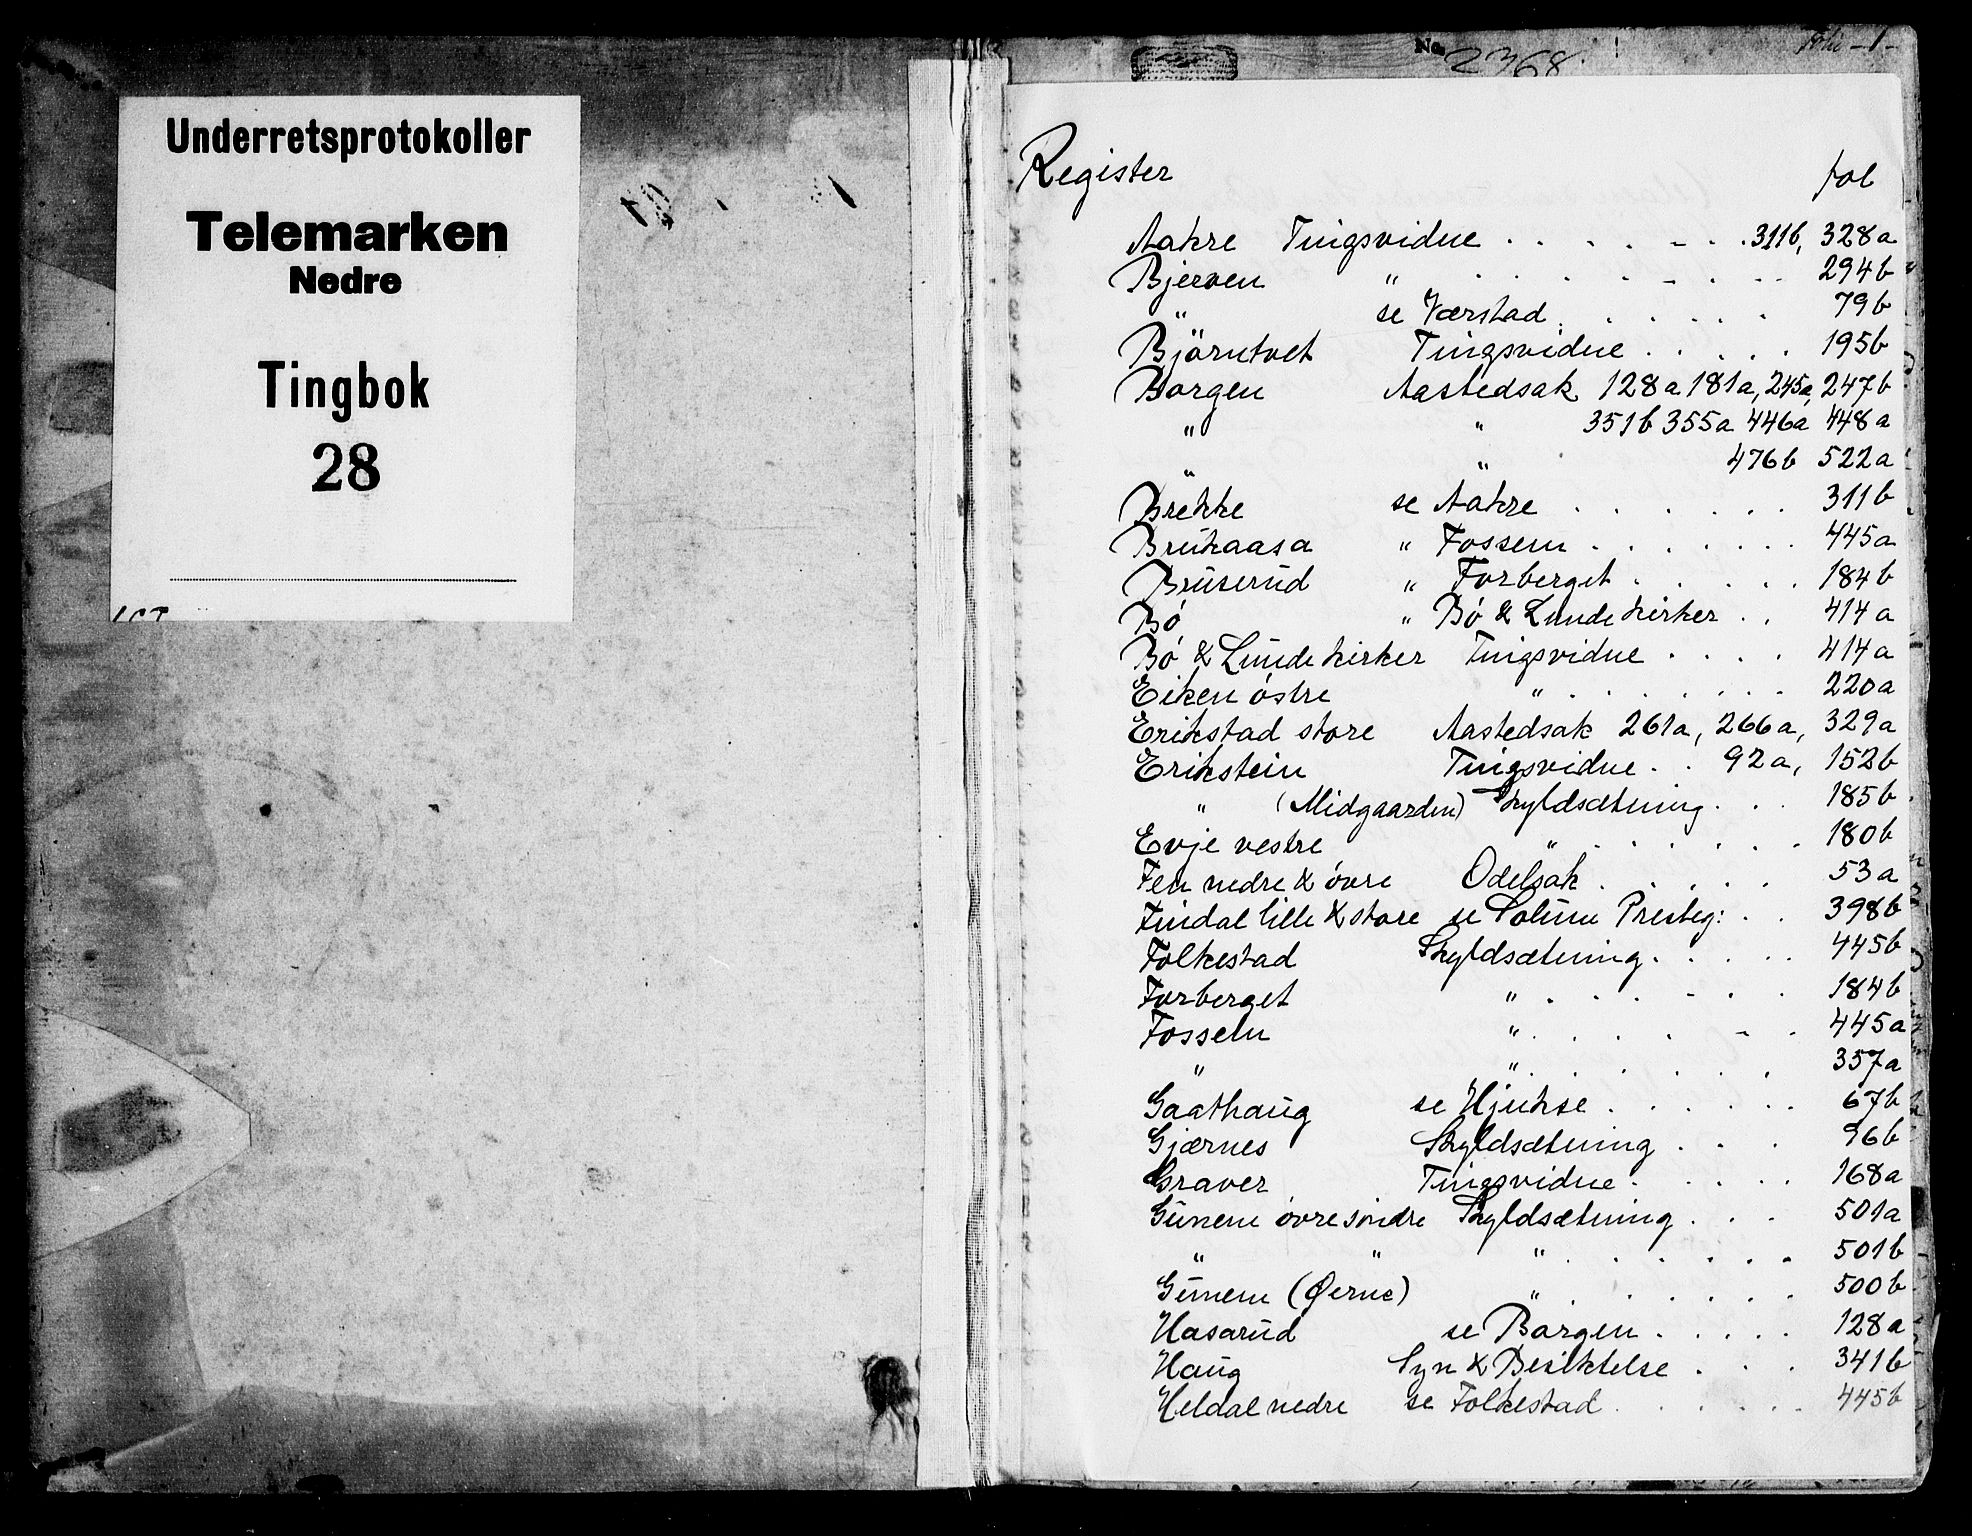 Underretsprotokoller
Telemarken
Nedre
Tingbok
28
No. 2368
Folio -1-
Register fol
Aakre Tingsvidne . . . . . . . 311b, 328a
Bjerven " . . . . . . . . 294b
" se Værstad . . . . . . 79b
Björntvet Tingsvidne . . . . . 195b
Borgen Aastedsak 128a 181a, 245a, 247b
" " 351b 355a 446a 448a
" " 476b 522a
Brekke se Aakre . . . . . . 311b
Brukaasa " Fossem . . . . . . 445a
Bruserud " Forberget . . . . . 184b
Bó " Bó & Lunde kirker . . 414a
Bó & Lunde kirker Tingsvidne . . . . 414a
Eiken östre " . . . . . . . 220a
Erikstad store Aastedsak 261a, 266a, 329a
Erikstein Tingsvidne . . 92a, 152b
" (Midgaarden) Skyldsætning . . . 185b
Evje vestre " . . . . . . 180b
Fen nedre & óvre Odelsak . . . . . 53a
Findal lille & store se Solum Presteg: . . 398b
Folkestad Skyldsætning . . . . . 445b
Forberget " . . . . . . 184b
Fossem " . . . . . . 445a
" " . . . . . . 357a
Gaathaug se Hjukse . . . . . . 67b
Gjærnes Skyldsætning . . . 96b
Graver Tingsvidne . . . . . 168a
Gunem óvre söndre Skyldsætning . . . 501a
" " " . . . . . . 501b
Gunem (Øerne) " . . . . . . 500b
Hasarud se Borgen . . . . . 128a
Haug Syn & Besiktelse . . . 341b
Heldal nedre se Folkestad . . . . . . 445b